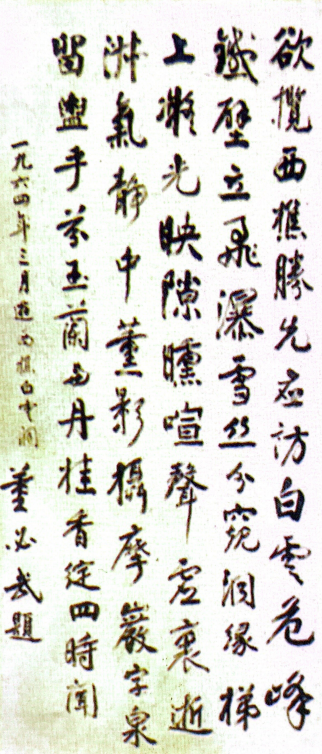 欲攬西樵勝先应訪白雲危峰
鐵壁立飛瀑雪丝分窺洞緣梯
上凝光映隙曛喧聲虛裏逝
淑氣静中薰影攝摩巖字泉
留盥手芬玉蘭与丹桂香綻四時聞
一九六四年三月遊西樵白雲洞 董必武題